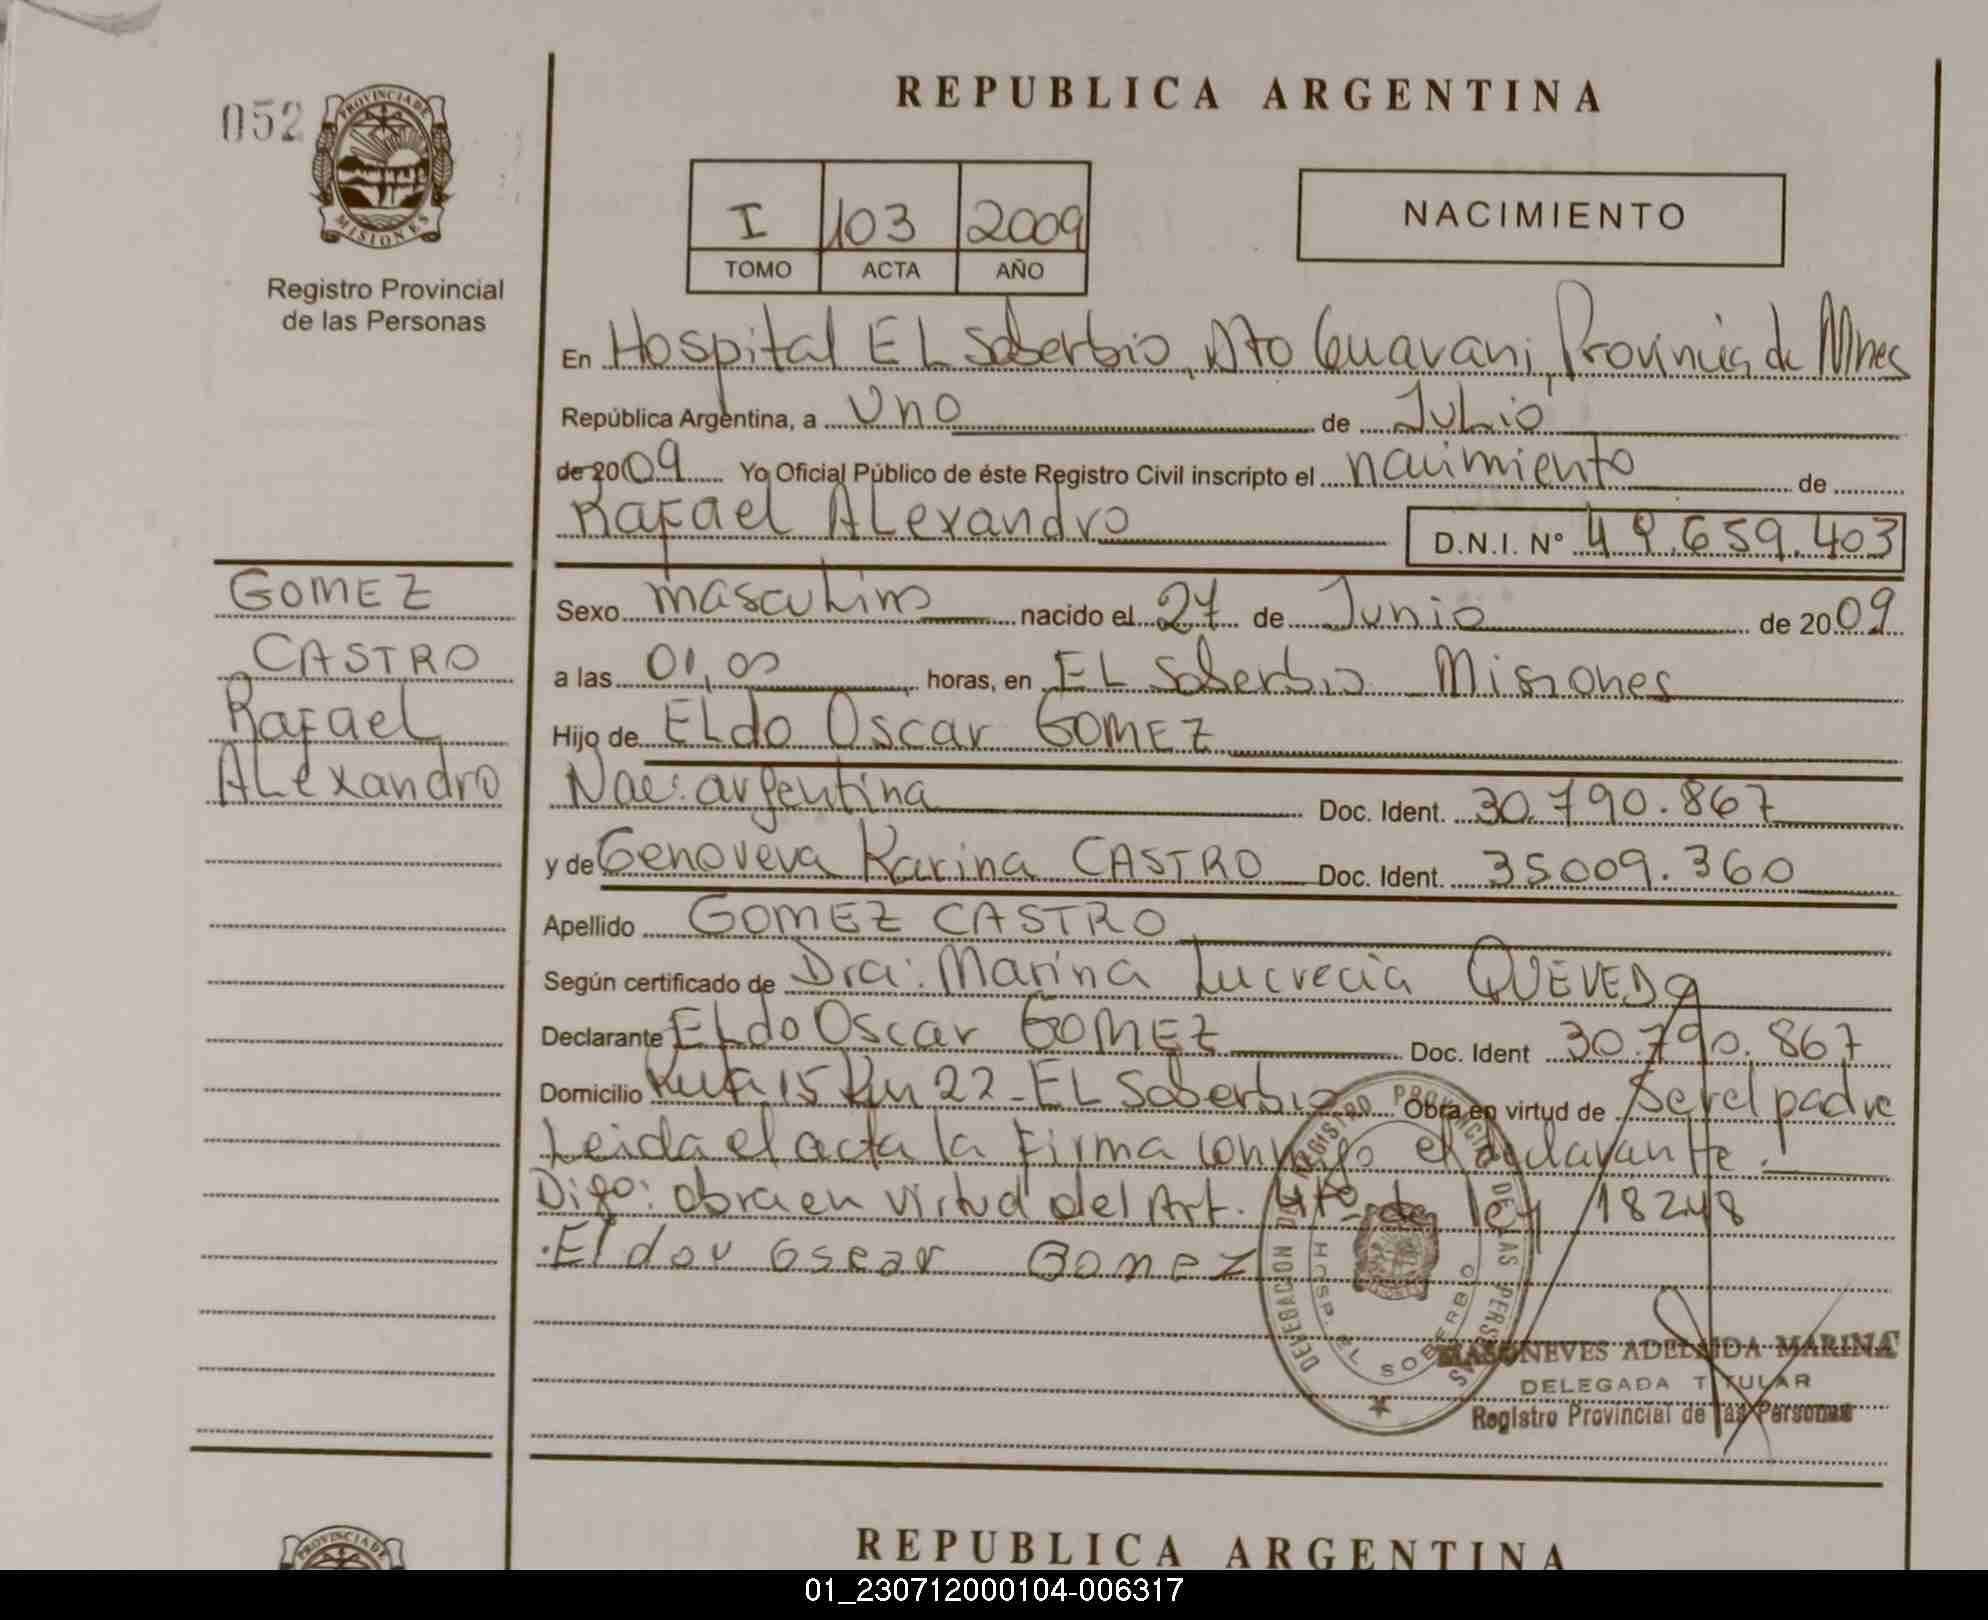 052
PROVINCIA DE
MISIONES
Registro Provincial
de las Personas
REPUBLICA ARGENTINA
I 103 2009
TOMO ACTA AÑO
NACIMIENTO
En Hospital EL Soberbio, Dto Guarani, Provincia de Mnes
República Argentina, a Uno de Julio
de 2009 Yo Oficial Público de éste Registro Civil inscripto el nacimiento de
Rafael ALexandro D.N.I. Nº 49.659.403
GOMEZ
CASTRO
Rafael
ALexandro
Sexo masculino nacido el 27 de Junio de 2009
a las 01,00 horas, en EL Soberbio Misiones
Hijo de ELdo Oscar GOMEZ
Nac: argentina Doc. Ident. 30.790.867
y de Genoveva Karina CASTRO Doc. Ident. 35009.360
Apellido GOMEZ CASTRO
Según certificado de Dra: Marina Lucrecia QUEVEDO
Declarante ELdo Oscar GOMEZ Doc. Ident 30.790.867
Domicilio Ruta 15 Km 22 - EL Soberbio Obra en virtud de Ser el padre
Leida el acta la firma conmigo el declarante.
Digo: obra en virtud del Art. 4to de ley 18248
Eldor Oscar Gomez
DELEGACION DEL REGISTRO PROVINCIAL DE LAS PERSONAS
HOSP. EL SOBERBIO
NEVES ADELAIDA MARINA
DELEGADA TITULAR
Registro Provincial de las Personas
PROVINCIA DE
REPUBLICA ARGENTINA
01_230712000104-006317